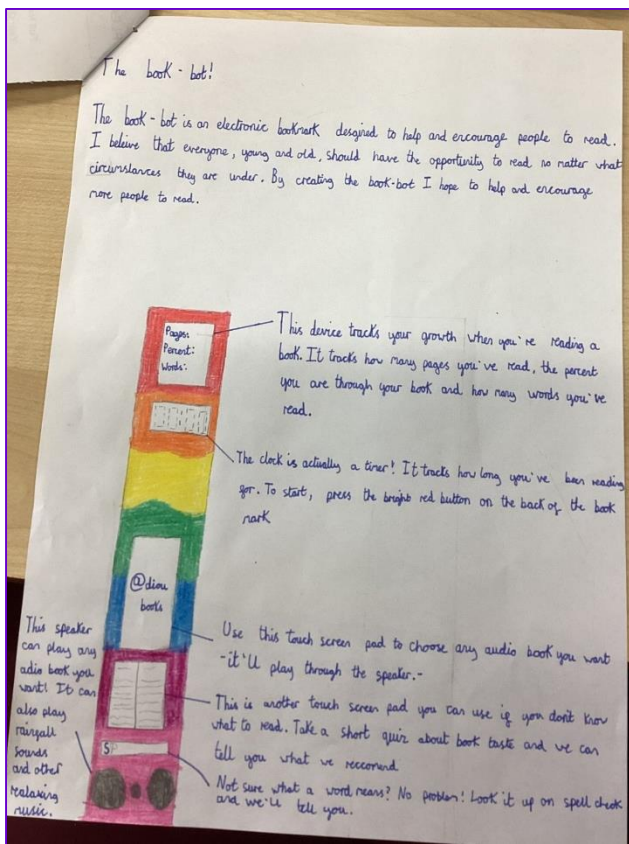 The book-bot!
The book-bot is an electronic bookmark desgired to help and encourage people to read.
I beleive that everyone, young and old, should have the opportunity to read no matter what
circumstances they are under. By creating the book-bot I hope to help and encourage
more people to read.
Pages:
Percent:
Words:
This device tracks your growth when you're reading a
book. It tracks how many pages you've read, the percent
you are through your book and how many words you've
read.
00:00
The clock is actually a timer! It tracks how long you've been reading
for. To start, press the bright red button on the back of the book
mark
@diou
books
Use this touch screen pad to choose any audio book you want
-it'll play through the speaker.-
This is another touch screen pad you can use if you don't know
what to read. Take a short quiz about book taste and we can
tell you what we reccomend
SP
Not sure what a word means? No problem! Look it up on spell check
and we'll tell you.
This speaker
can play any
adio book you
want! It can
also play
rainfall
sounds
and other
realaxing
music.